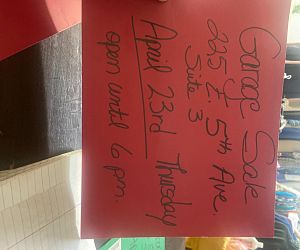 Garage Sale
225 E. 5th Ave.
Suite 3
April 23rd Thursday
open until 6 pm.